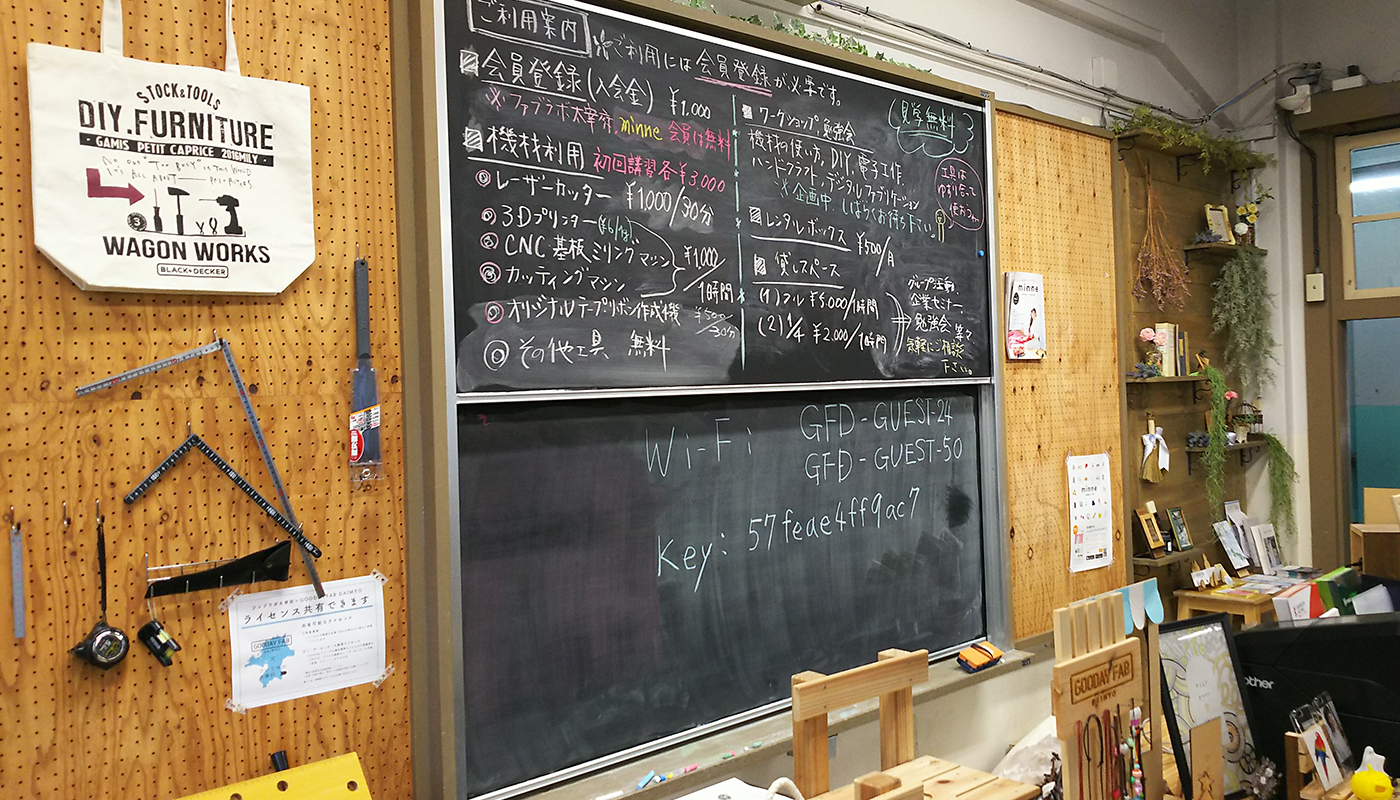 STOCK&TOOLS
DIY.FURNITURE
GAMIS PETIT CAPRICE 2016MILY
WAGON WORKS
BLACK+DECKER
ライセンス共有できます
GOODAY FAB
ご利用案内
※ご利用には会員登録が必要です。
会員登録(入会金) ¥1,000
※ファブラボ太宰府、minne 会員は無料
機材利用 初回講習各¥3,000
レーザーカッター ¥1,000/30分
3Dプリンター
CNC基板ミリングマシン
カッティングマシン
¥1,000/1時間
オリジナルテープ・リボン作成機 ¥500/30分
その他工具 無料
ワークショップ・勉強会
見学無料
機材の使い方、DIY、電子工作、
ハンドクラフト、デジタルファブリケーション
※企画中、しばらくお待ち下さい。
工具は
ゆずり合って
使おうね
レンタルボックス ¥500/月
貸しスペース
(1)フル ¥5,000/1時間
(2)1/4 ¥2,000/1時間
グループ活動、
企業セミナー、
勉強会 等々
気軽にご相談
下さい。
Wi-Fi GFD-GUEST-24
GFD-GUEST-50
Key: 57feae4ff9ac7
minne
minne
GOODAY FAB
DAIMYO
brother